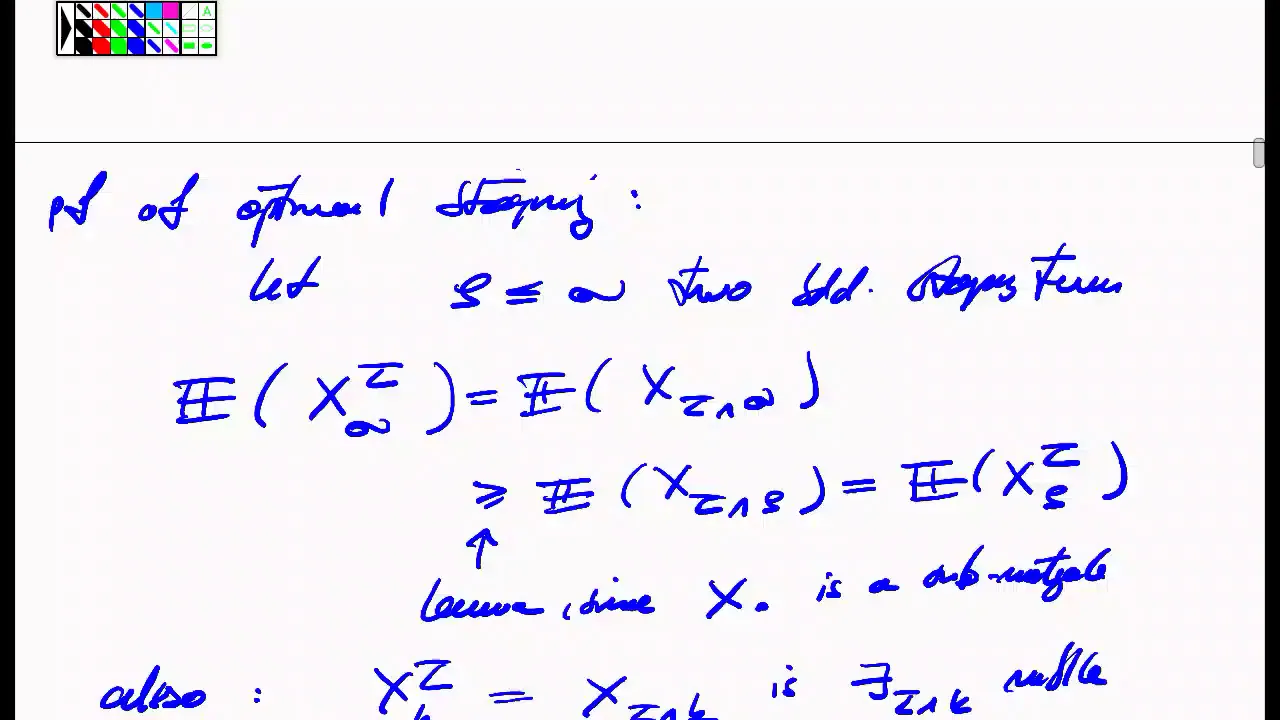 pf of optional stopping :
let ς ≤ σ two bdd. stopping times
𝔼 ( X_σ^τ ) = 𝔼 ( X_{τ∧σ} )
≥ 𝔼 ( X_{τ∧ς} ) = 𝔼 ( X_ς^τ )
↑
lemma , since X. is a sub-martingale
also : X_k^τ = X_{τ∧k} is ℱ_{τ∧k} mble
A